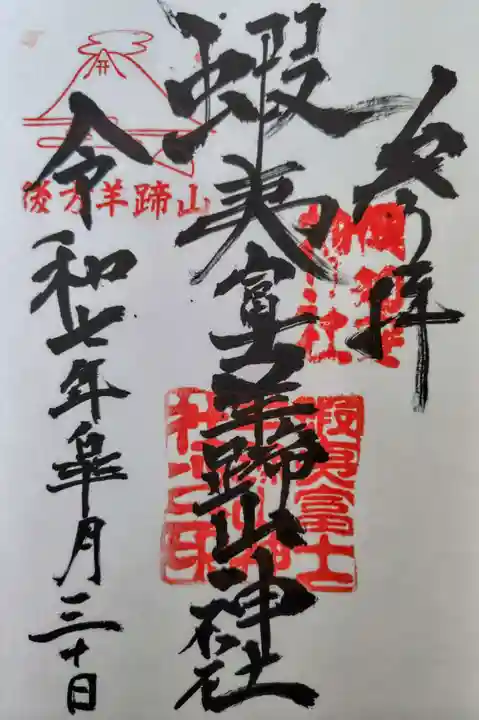 参拝
蝦夷富士羊蹄山神社
令和七年皐月三十日
後方羊蹄山
蝦夷富士
羊蹄山神
社之印